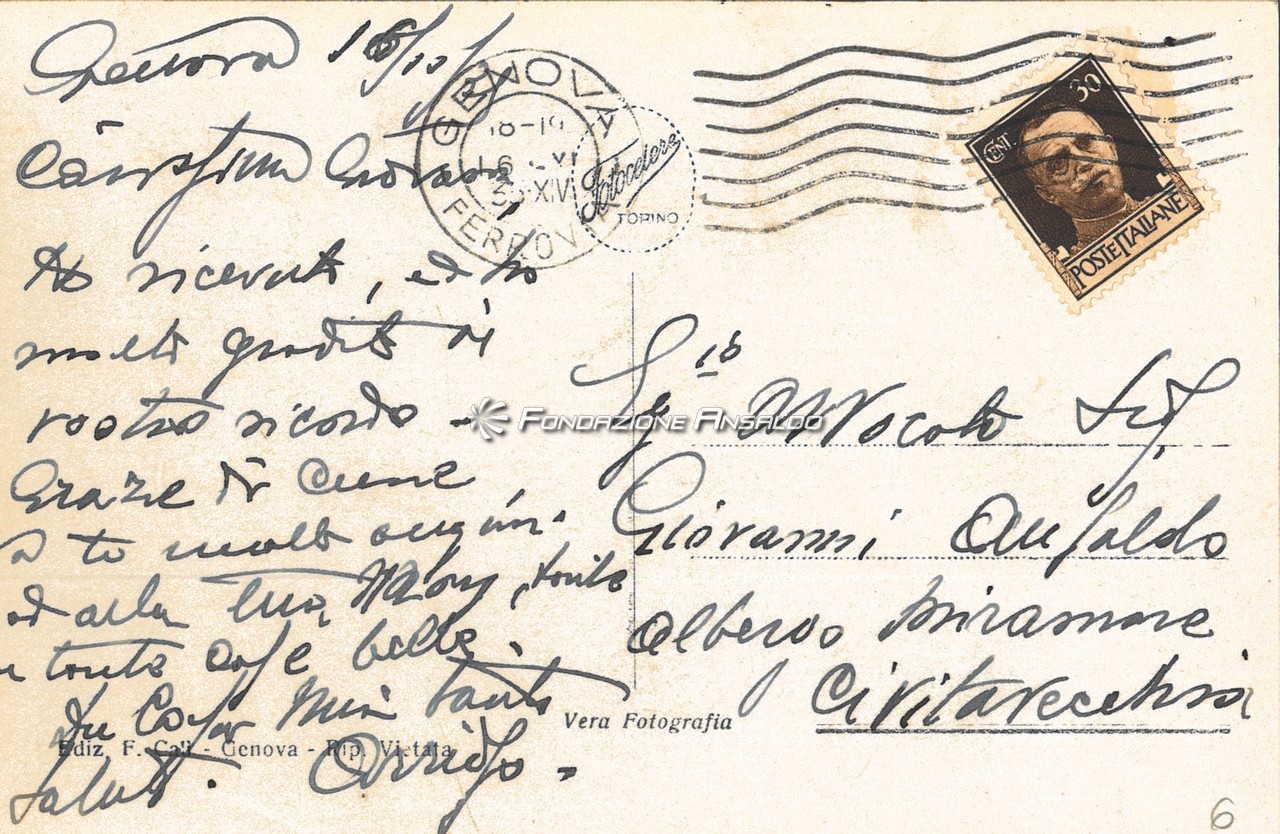 Genova 16/11/
Carissimo Giovanni
Ho ricevuto, ed ho
molto gradito il
vostro ricordo -
Grazie di cuore
a te molti auguri
ed alla tua Mary, tante
tante cose belle.
Da Casa Mia tanti
saluti. Arrigo -
GENOVA
FERROVIA
18-19
16
XIV
Fotocelere
TORINO
CENT. 30
POSTE ITALIANE
Avvocato Sig.
Giovanni Ansaldo
Albergo Miramare
Civitavecchia
FONDAZIONE ANSALDO
Vera Fotografia
Ediz. F. Calì - Genova - Rip. Vietata
6